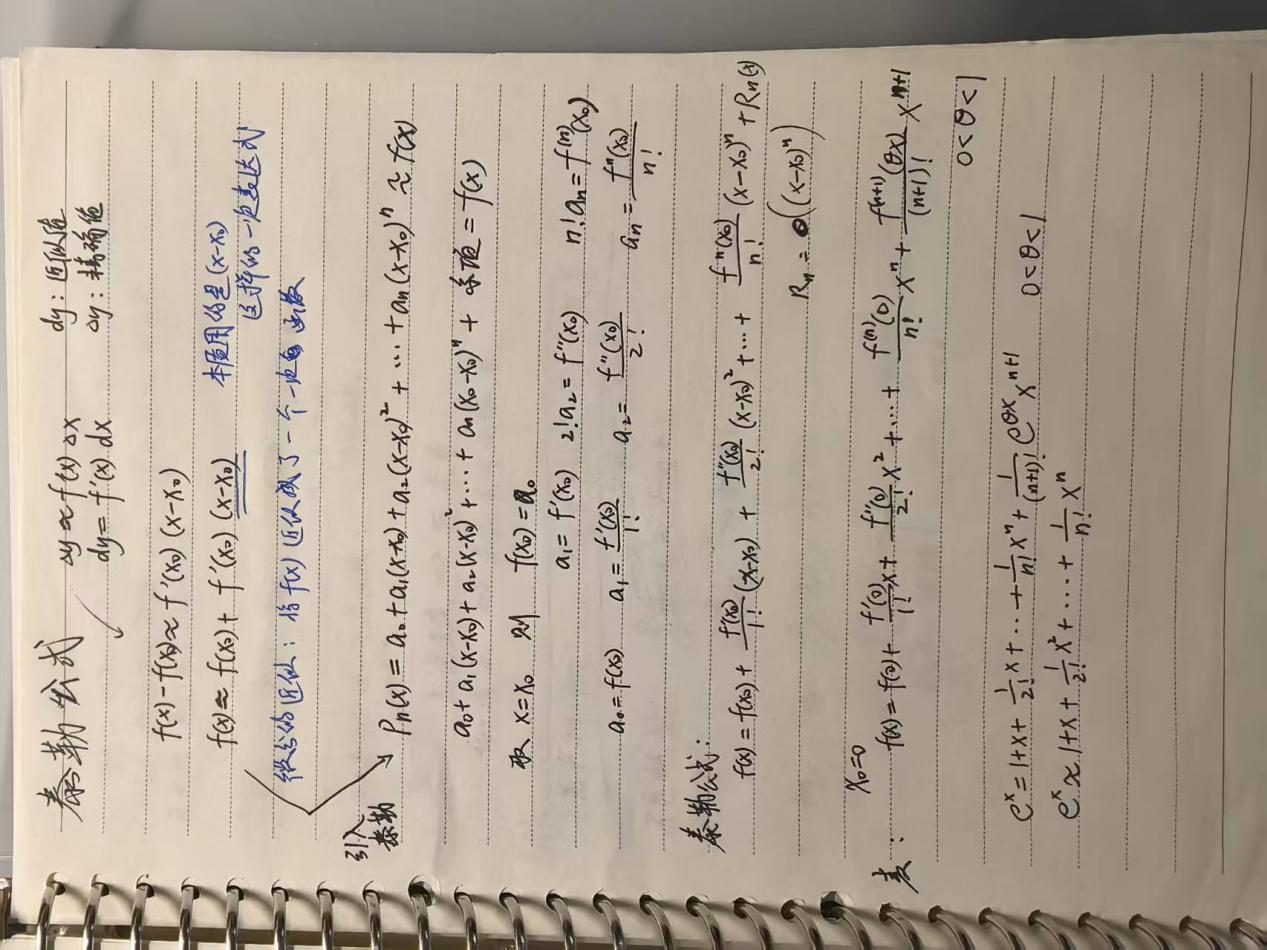 泰勒公式 Δy ≈ f'(x)·Δx dy: 近似值
dy = f'(x) dx Δy: 精确值
f(x) - f(x₀) ≈ f'(x₀) (x-x₀)
f(x) ≈ f(x₀) + f'(x₀) (x-x₀) 本质用的是(x-x₀)
这样的一次表达式
微分的近似: 将f(x)近似成了一个一次函数
引入
泰勒 Pₙ(x) = a₀ + a₁(x-x₀) + a₂(x-x₀)² + ... + aₙ(x-x₀)ⁿ ≈ f(x)
a₀ + a₁(x-x₀) + a₂(x-x₀)² + ... + aₙ(x₀-x₀)ⁿ + 余项 = f(x)
取 x=x₀ 则 f(x₀) = a₀
a₁ = f'(x₀) 2!a₂ = f''(x₀) n!aₙ = f⁽ⁿ⁾(x₀)
a₀ = f(x₀) a₁ = f'(x₀)/1! a₂ = f''(x₀)/2! aₙ = fⁿ(x₀)/n!
泰勒公式:
f(x) = f(x₀) + f'(x₀)/1! (x-x₀) + f''(x₀)/2! (x-x₀)² + ... + fⁿ(x₀)/n! (x-x₀)ⁿ + Rₙ(x)
Rₙ = o((x-x₀)ⁿ)
x₀=0
麦: f(x) = f(0) + f'(0)/1! x + f''(0)/2! x² + ... + f⁽ⁿ⁾(0)/n! xⁿ + f⁽ⁿ⁺¹⁾(θx)/(n+1)! xⁿ⁺¹
0<θ<1
eˣ = 1+x+ 1/2! x + ... + 1/n! xⁿ + 1/(n+1)! e^θx xⁿ⁺¹ 0<θ<1
eˣ ≈ 1+x + 1/2! x² + ... + 1/n! xⁿ